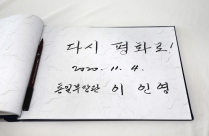 다시 평화로!
2020. 11. 4.
통일부장관 이인영